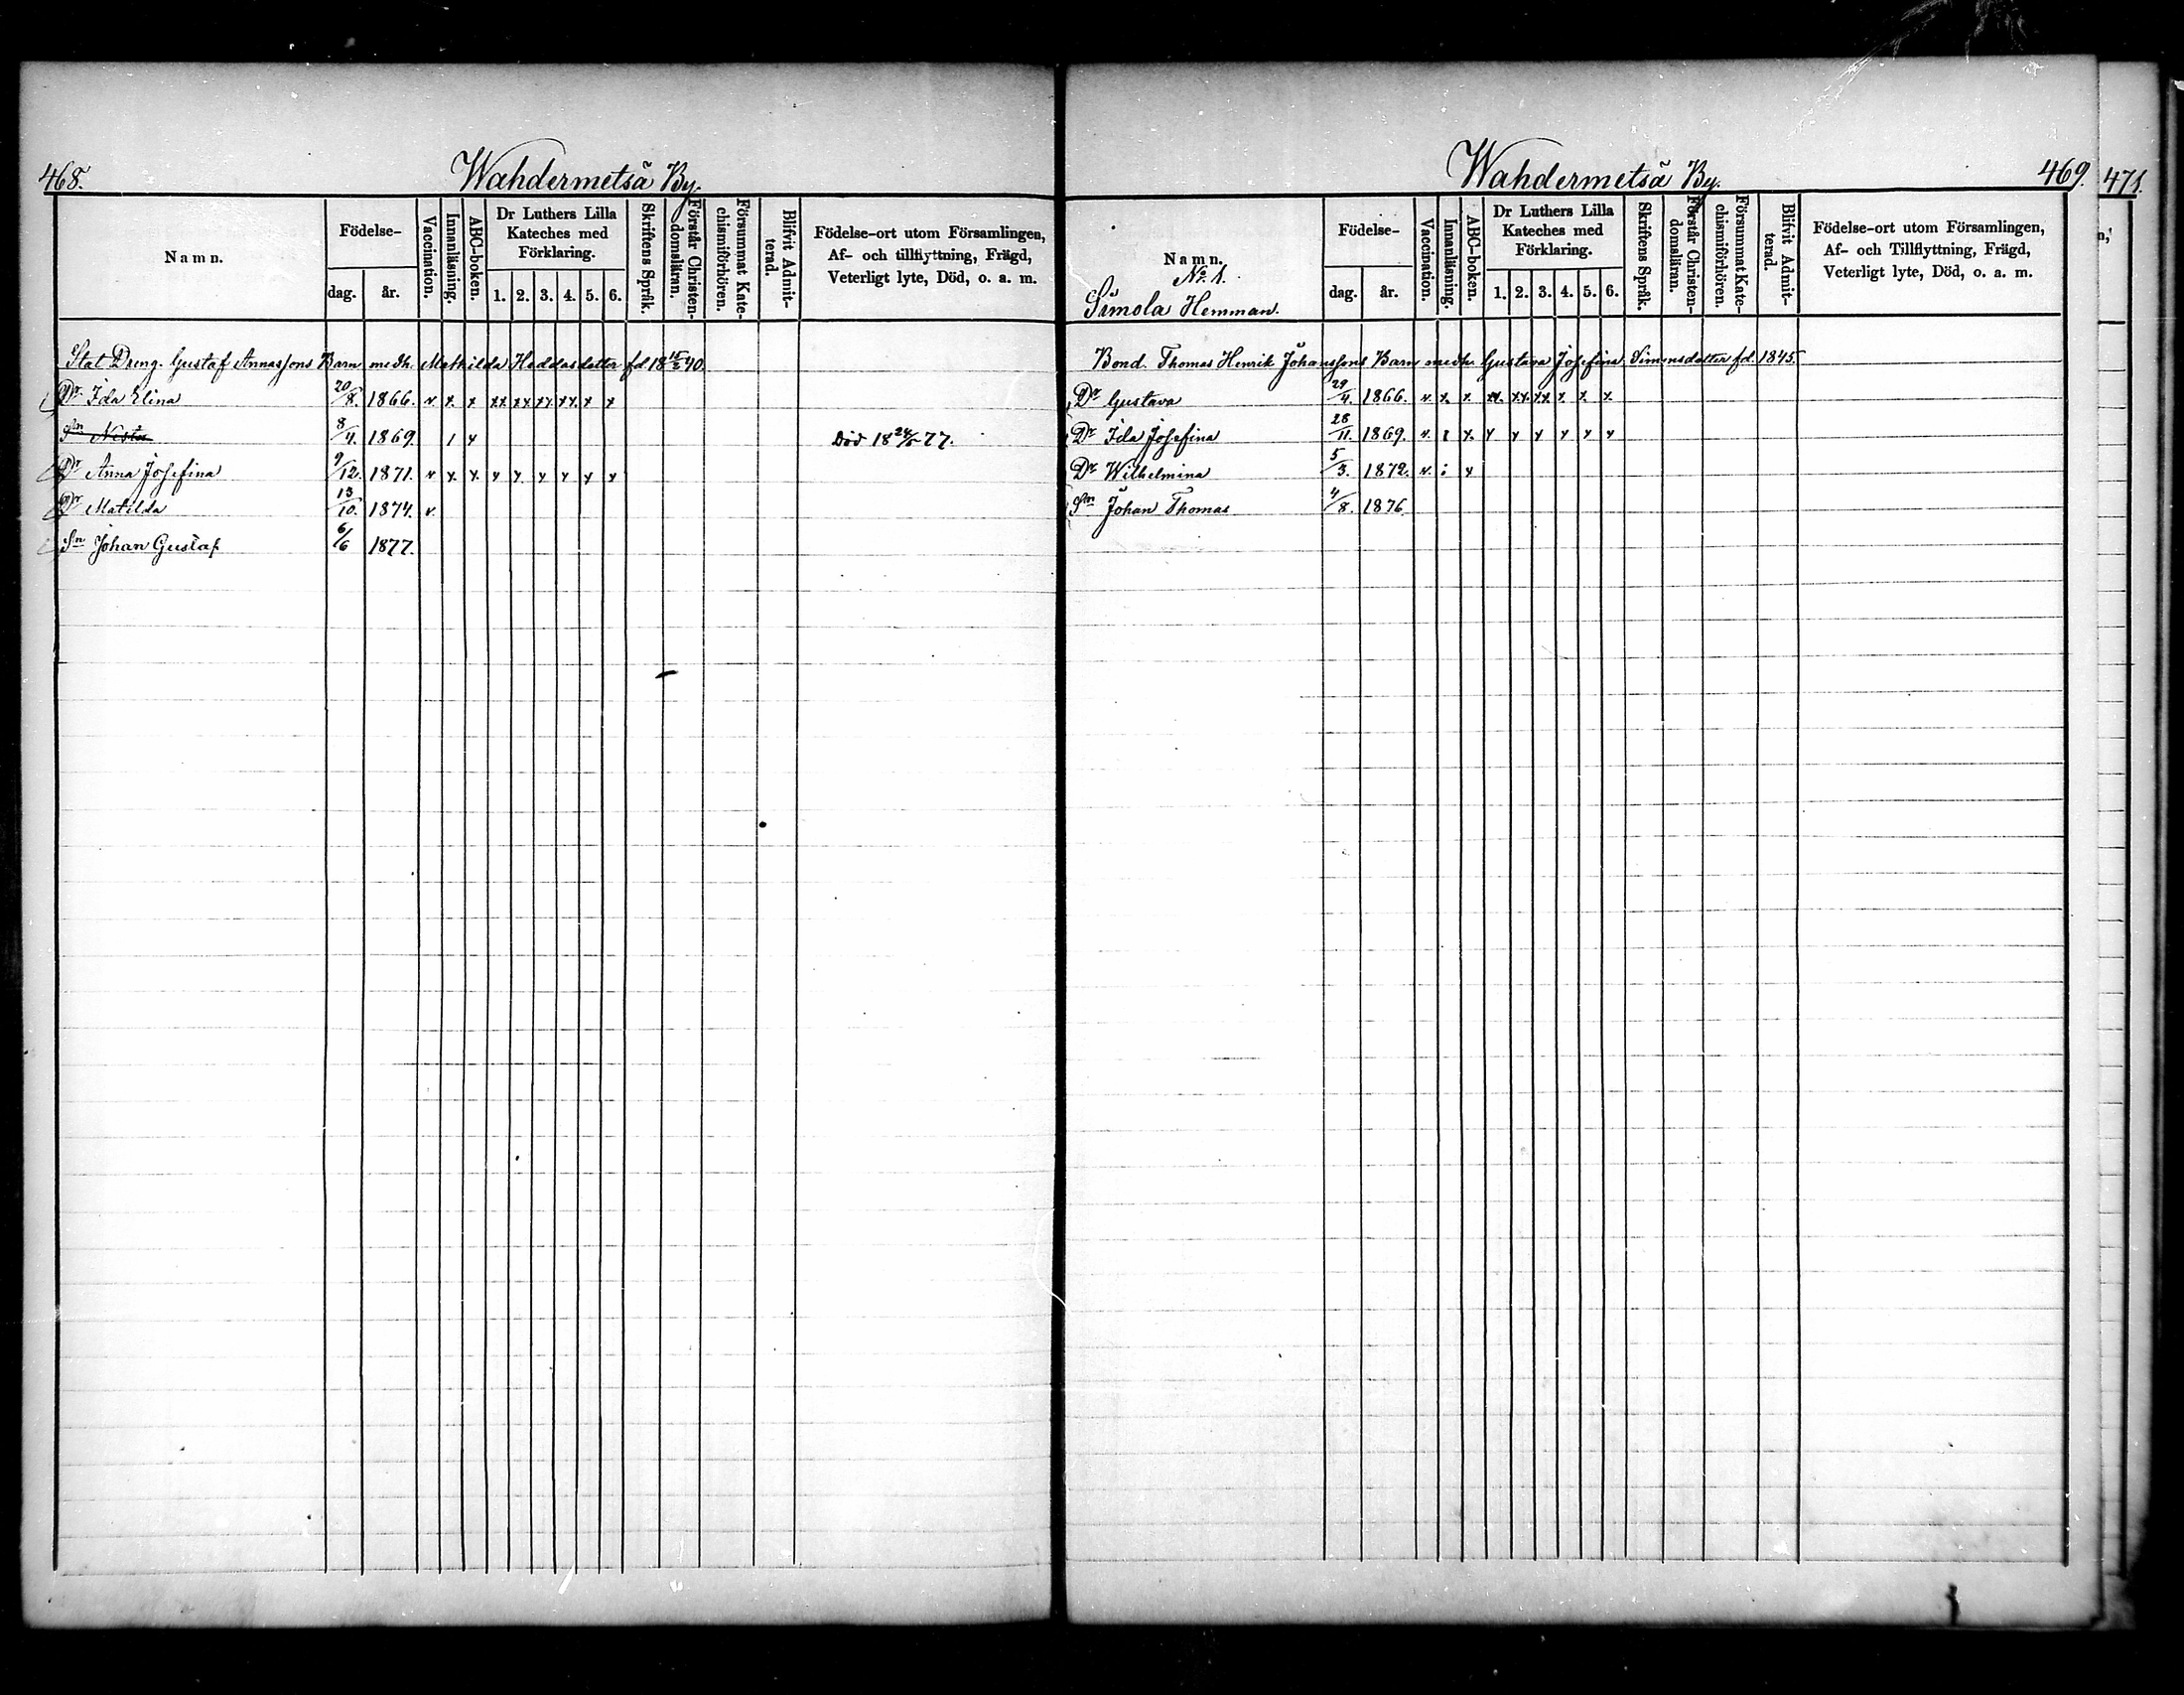 468.
Wahdermetsä By.
Namn.
Födelse-
dag.
år.
Vaccination.
Innanläsning.
ABC-boken.
Dr Luthers Lilla
Kateches med
Förklaring.
1. 2. 3. 4. 5. 6.
Skriftens Språk.
Förstår Christen-
domsläran.
Försummat Kate-
chismiförhören.
Blifvit Admit-
terad.
Födelse-ort utom Församlingen,
Af- och tillflyttning, Frägd,
Veterligt lyte, Död, o. a. m.
Stat Dreng. Gustaf Annassons Barn medh. Mathilda Heddasdotter fd. 18 40.
Dr Ida Elina 20/8. 1866. v. x. x xx xx xx xx x x
Sn 8/4. 1869. 1 x Död 18 77.
Dr Anna Josefina 9/12. 1871. v x. x. x x x x x x
Dr Matilda 13/10. 1874. v.
Sn Johan Gustaf 6/6 1877.
Wahdermetsä By.
469.
Namn.
No. 1.
Simola Hemman.
Födelse-
dag.
år.
Vaccination.
Innanläsning.
ABC-boken.
Dr Luthers Lilla
Kateches med
Förklaring.
1. 2. 3. 4. 5. 6.
Skriftens Språk.
Förstår Christen-
domsläran.
Försummat Kate-
chismiförhören.
Blifvit Admit-
terad.
Födelse-ort utom Församlingen,
Af- och Tillflyttning, Frägd,
Veterligt lyte, Död, o. a. m.
Bond. Thomas Henrik Johanssons Barn medh. Gustava Josefina Simonsdotter fd. 1845
Dr Gustava 29/4. 1866. v x. x xx. xx. xx x x. x
Dr Ida Josefina 28/11. 1869. v. 1 x. x x x x x x
Dr Wilhelmina 5/3. 1872. v. : x
Sn Johan Thomas 4/8. 1876.
471.
n,